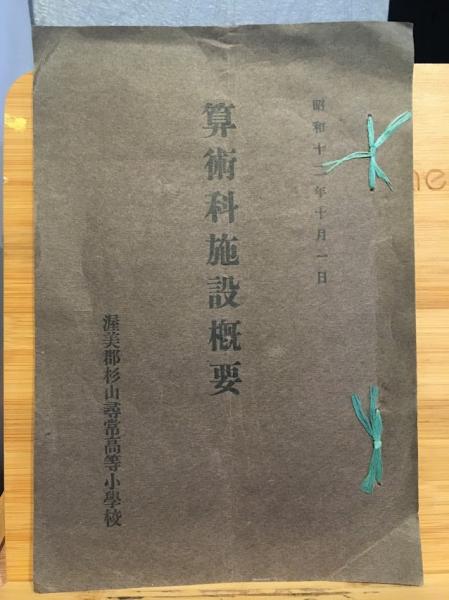 昭和十二年十月一日
算術科施設概要
渥美郡杉山尋常高等小學校
ne